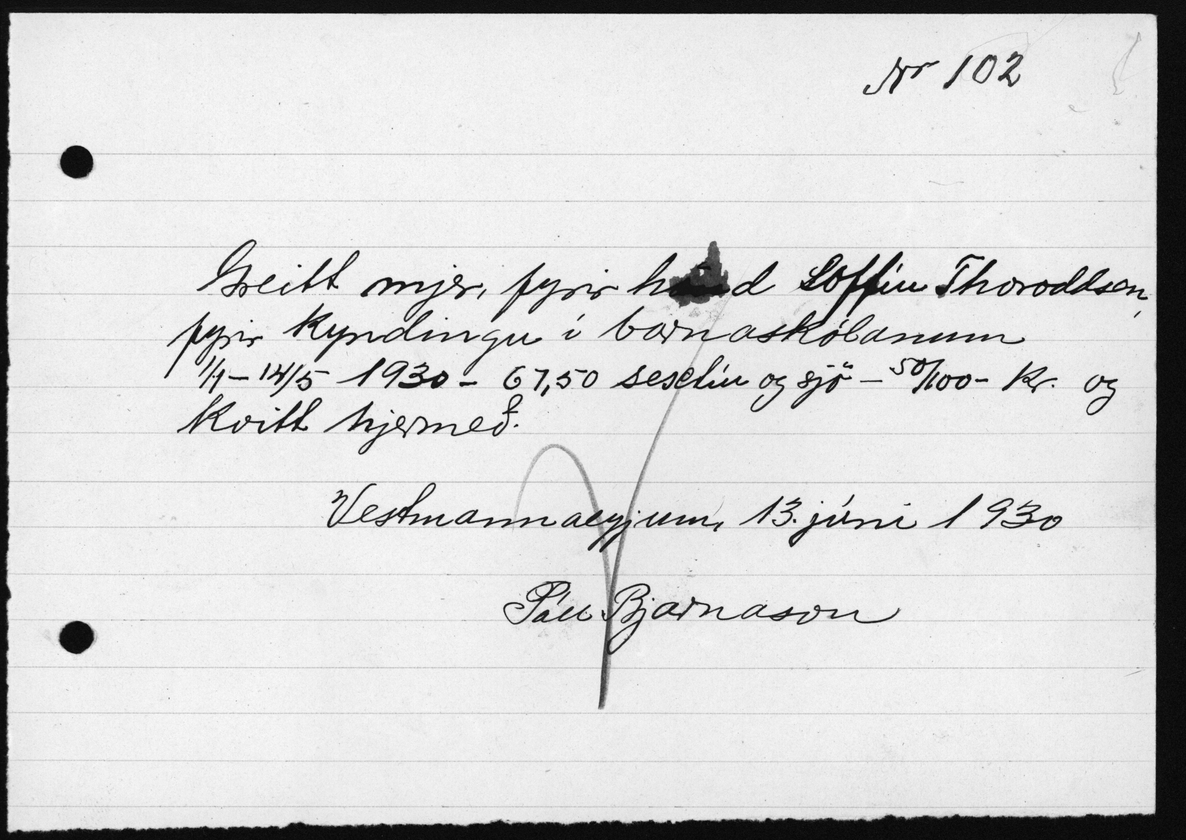 Nr 102
Greitt mjer, fyrir hönd Soffíu Thoroddsen,
fyrir kyndingu í barnaskólanum
1/1 – 14/5 1930 – 67,50 sextíu og sjö – 50/100 – Kr. og
kvitt hjermeð.
Vestmannaeyjum, 13. júní 1930
Páll Bjarnason